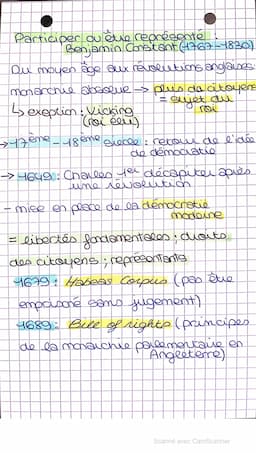 Participer ou être représenté :
Benjamin Constant (1767-1830)
Du moyen âge aux révolutions anglaises
monarchie absolue → plus de citoyens
= sujet du
roi
↳ exeption : Vicking
(roi élu)
→ 17ème - 18ème siècle : retour de l'idée
de démocratie
→ 1649 : Charles 1er décapiter après
une révolution
- mise en place de la démocratie
moderne
= libertés fondamentales ; droits
des citoyens ; représentants
1679 : Habeas Corpus (pas être
emprisoné sans jugement)
1689 : Bill of rights (principes
de la monarchie parlementaire en
Angleterre)
Scanné avec CamScanner